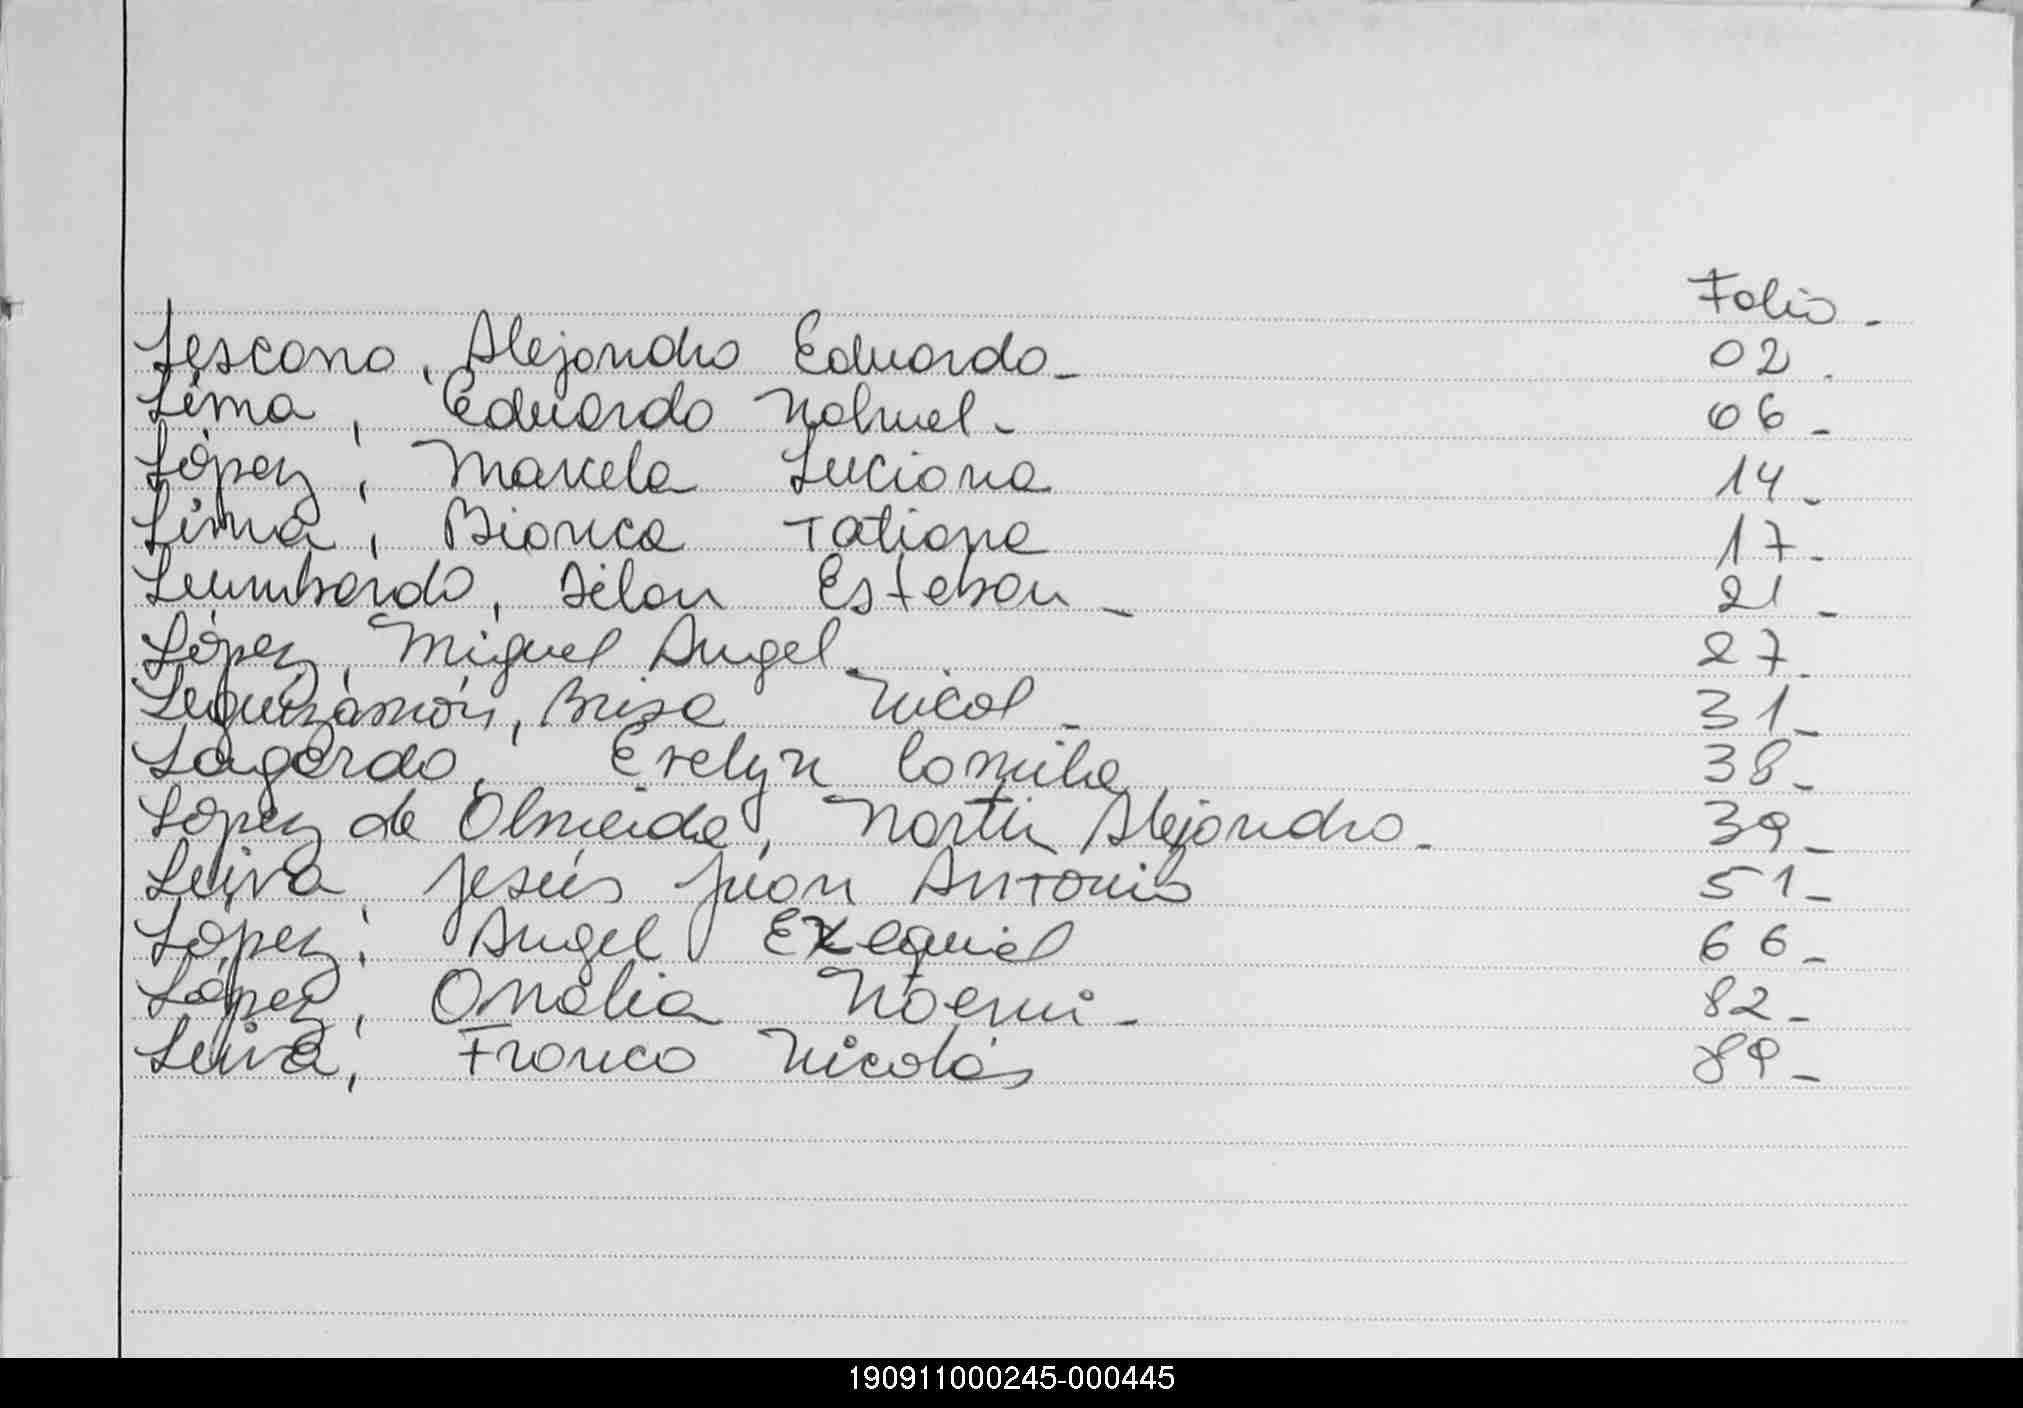 Folio -
Lescano, Alejandro Eduardo - 02 -
Lima, Eduardo Nahuel - 06 -
López, Marcela Luciana 14 -
Lima, Bianca Tatiana 17 -
Lumbardo, Dilan Esteban - 21 -
López, Miguel Angel - 27 -
Leguizámón, Brisa Nicol - 31 -
Lagardo, Evelyn Camila 38 -
López de Olmeida, Martín Alejandro - 39 -
Leiva, Jesús Juan Antonio 51 -
López, Angel Exequiel 66 -
López, Analia Noemi - 82 -
Leiva, Franco Nicolás 89 -
190911000245-000445